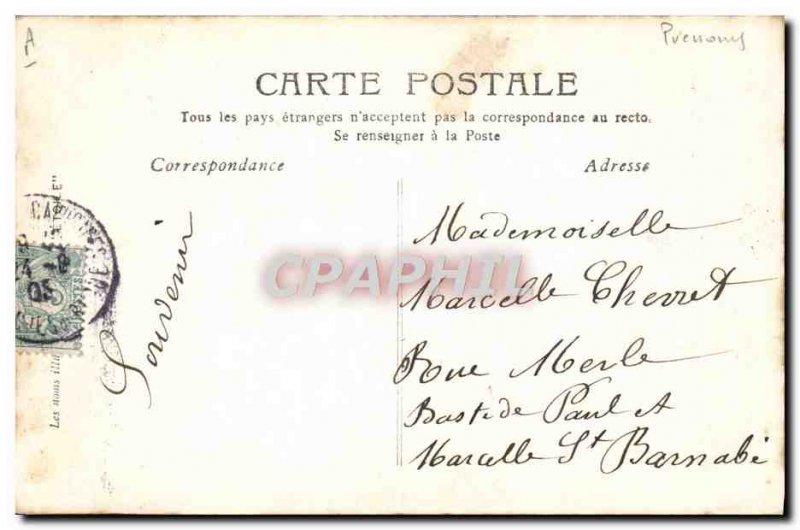 A
Prenoms
CARTE POSTALE
Tous les pays étrangers n'acceptent pas la correspondance au recto.
Se renseigner à la Poste
Correspondance
Adresse
Souvenir
Mademoiselle
Marcelle Chevret
Rue Merle
Bastide Paul et
Marcelle St Barnabé
CPAPHIL
Les noms
24 -8
05